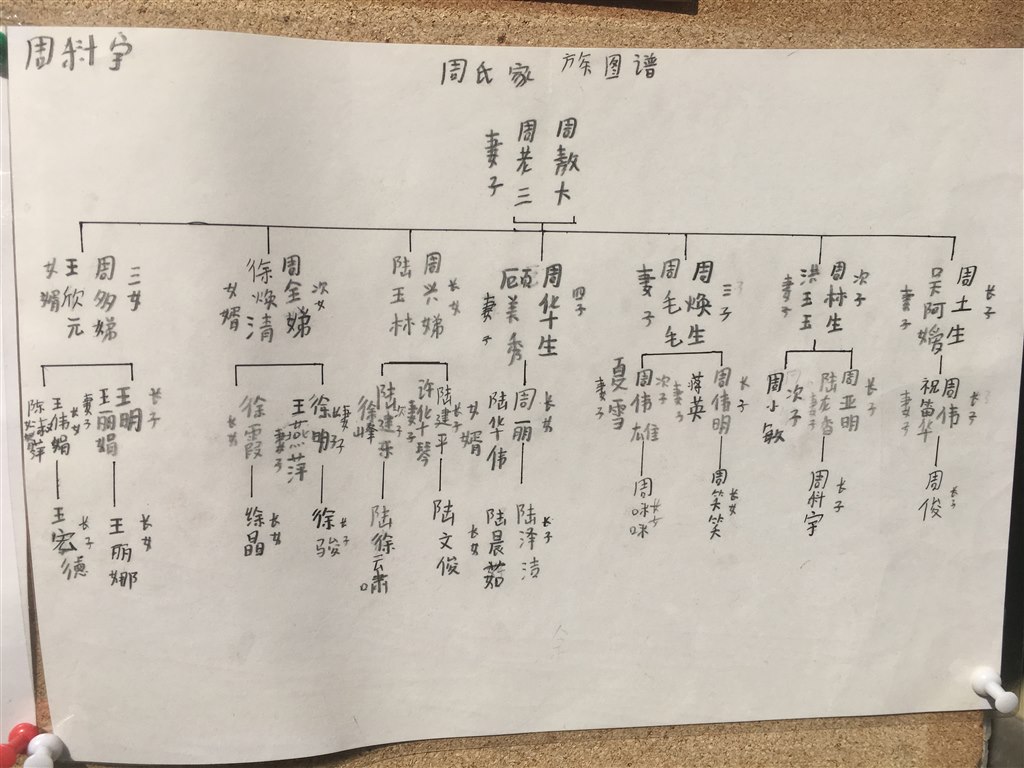 周科宇
周氏家族图谱
周敖大
周老三
妻子
三女
周多娣
王欣元
女婿
次女
周全娣
徐焕清
女婿
长女
周兴娣
陆玉林
四子
周华生
顾美秀
妻子
三子
周焕生
周毛毛
妻子
次子
周林生
洪玉玉
妻子
长子
周土生
吴阿嫒
妻子
长子
王明
王丽娟
妻子
长女
王伟娟
陈
长子
徐明
王燕萍
妻子
长女
徐霞
女婿
长子
陆建平
许华琴
妻子
次子
陆建乐
徐峰
长女
周丽
陆华伟
长子
周伟明
蒋英
妻子
次子
周伟雄
夏雪
妻子
长子
周亚明
陆龙香
妻子
次子
周小敏
长子
周伟
祝笛华
妻子
长子
王宏德
长女
王丽娜
长女
徐晶
长子
徐骏
陆徐云啸
陆文俊
长女
陆晨茹
长子
陆泽洁
长女
周咪咪
长女
周笑笑
长子
周科宇
长子
周俊